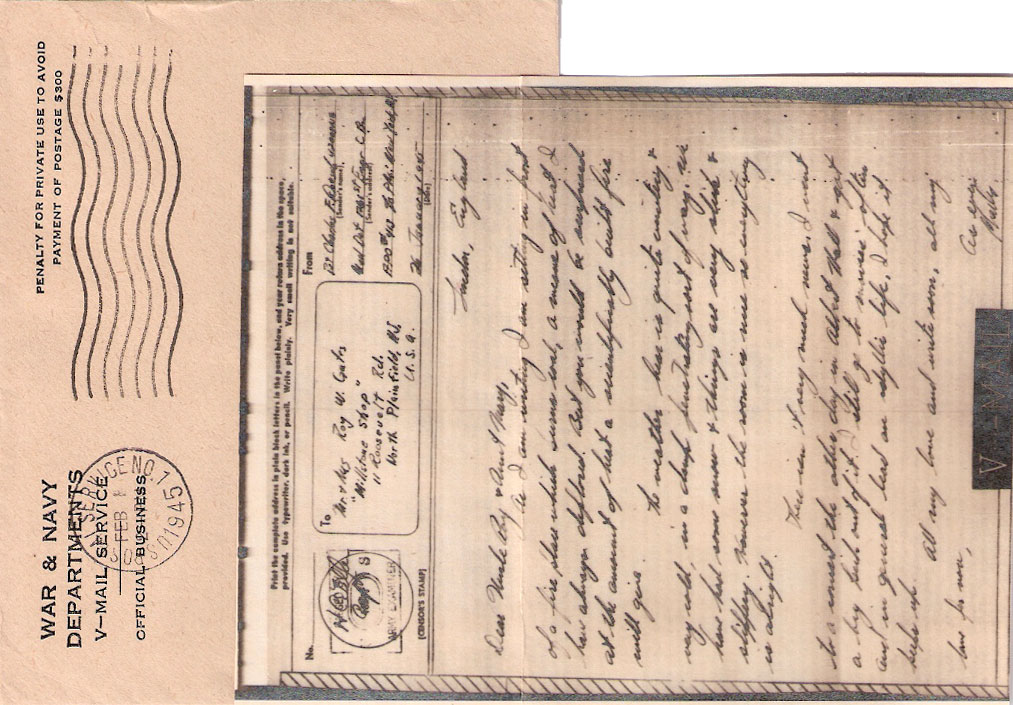 WAR & NAVY
DEPARTMENTS
V-MAIL SERVICE
OFFICIAL BUSINESS
PENALTY FOR PRIVATE USE TO AVOID
PAYMENT OF POSTAGE $300
FEB
1945
Print the complete address in plain block letters in the panel below, and your return address in the space
provided. Use typewriter, dark ink, or pencil. Write plainly. Very small writing is not suitable.
No.
ARMY EXAMINER
(CENSOR'S STAMP)
To
Mr. & Mrs Roy W.
"Millbone Shop"
11 Roosevelt Rd.
North Plainfield, N.J.
U.S.A.
From
(Sender's name)
(Sender's address)
New York
(Date)
England
Dear Uncle Roy & Aunt Mary,
As I am writing I am sitting in front
of a fire place which burns coal, a means of heat I
have always deplored. But you would be surprised
at the amount of heat a scientifically built fire
will give.
The weather here is quite wintery &
very cold, in a damp penetrating sort of way. We
have had some snow & things are very slick &
slippery. However the room is nice so everything
is alright.
There isn't very much news. I went
to a concert the other day in Albert Hall & got
a big kick out of it. I still go to movies often
and in general lead an idyllic life. I hope it
keeps up.
All my love and write soon, all my
love for now,
As ever
V-MAIL